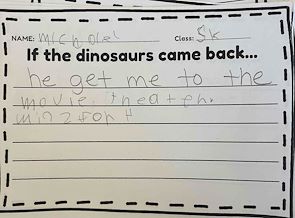 NAME: Michael Class: SK
If the dinosaurs came back...
he get me to the
movie. theatehr